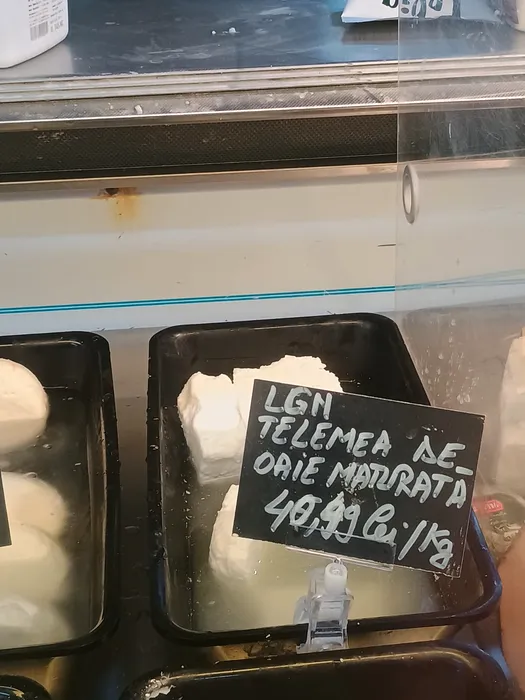 LGN
TELEMEA DE-
OAIE MATURATĂ
40,99 lei/kg